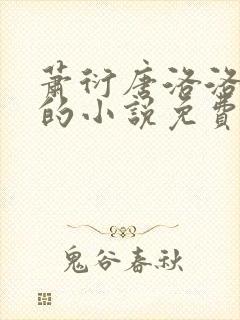 萧衍唐洛洛
的小説免費
鬼谷春秋